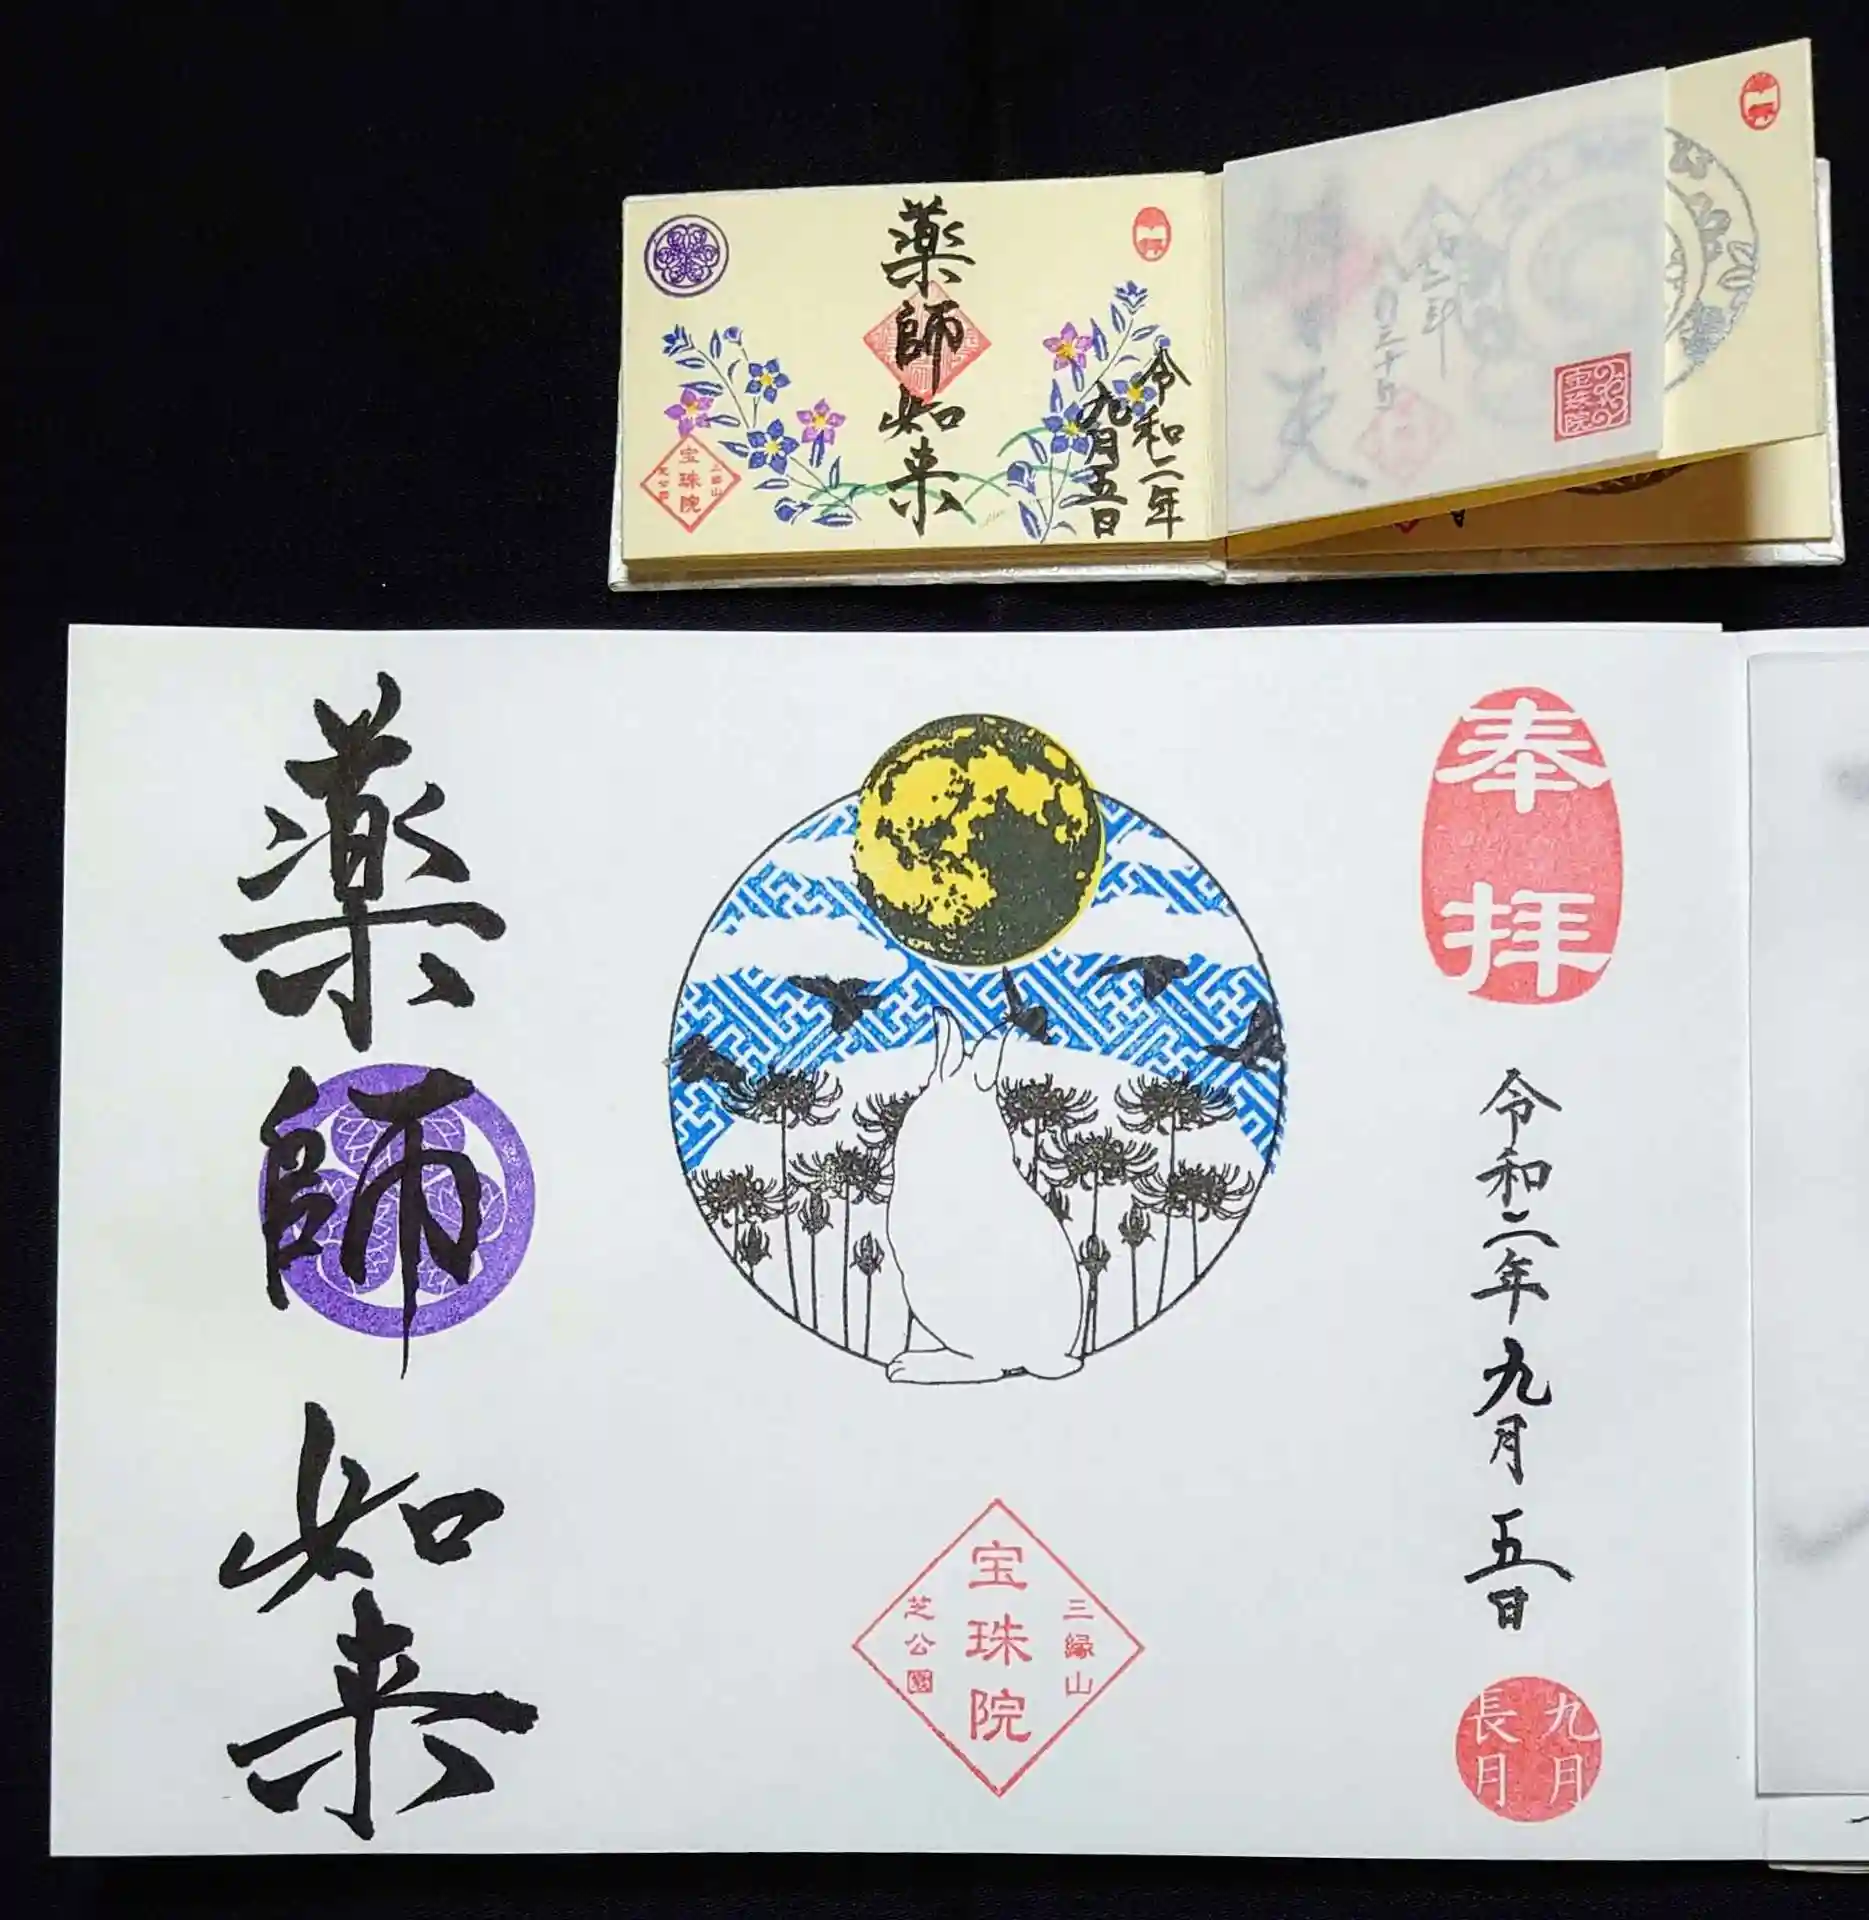 令和二年
九月五日
薬師如来
三縁山
宝珠院
芝公園
宝珠院
奉拝
令和二年九月五日
九月
長月
三縁山
宝珠院
芝公園
薬師如来